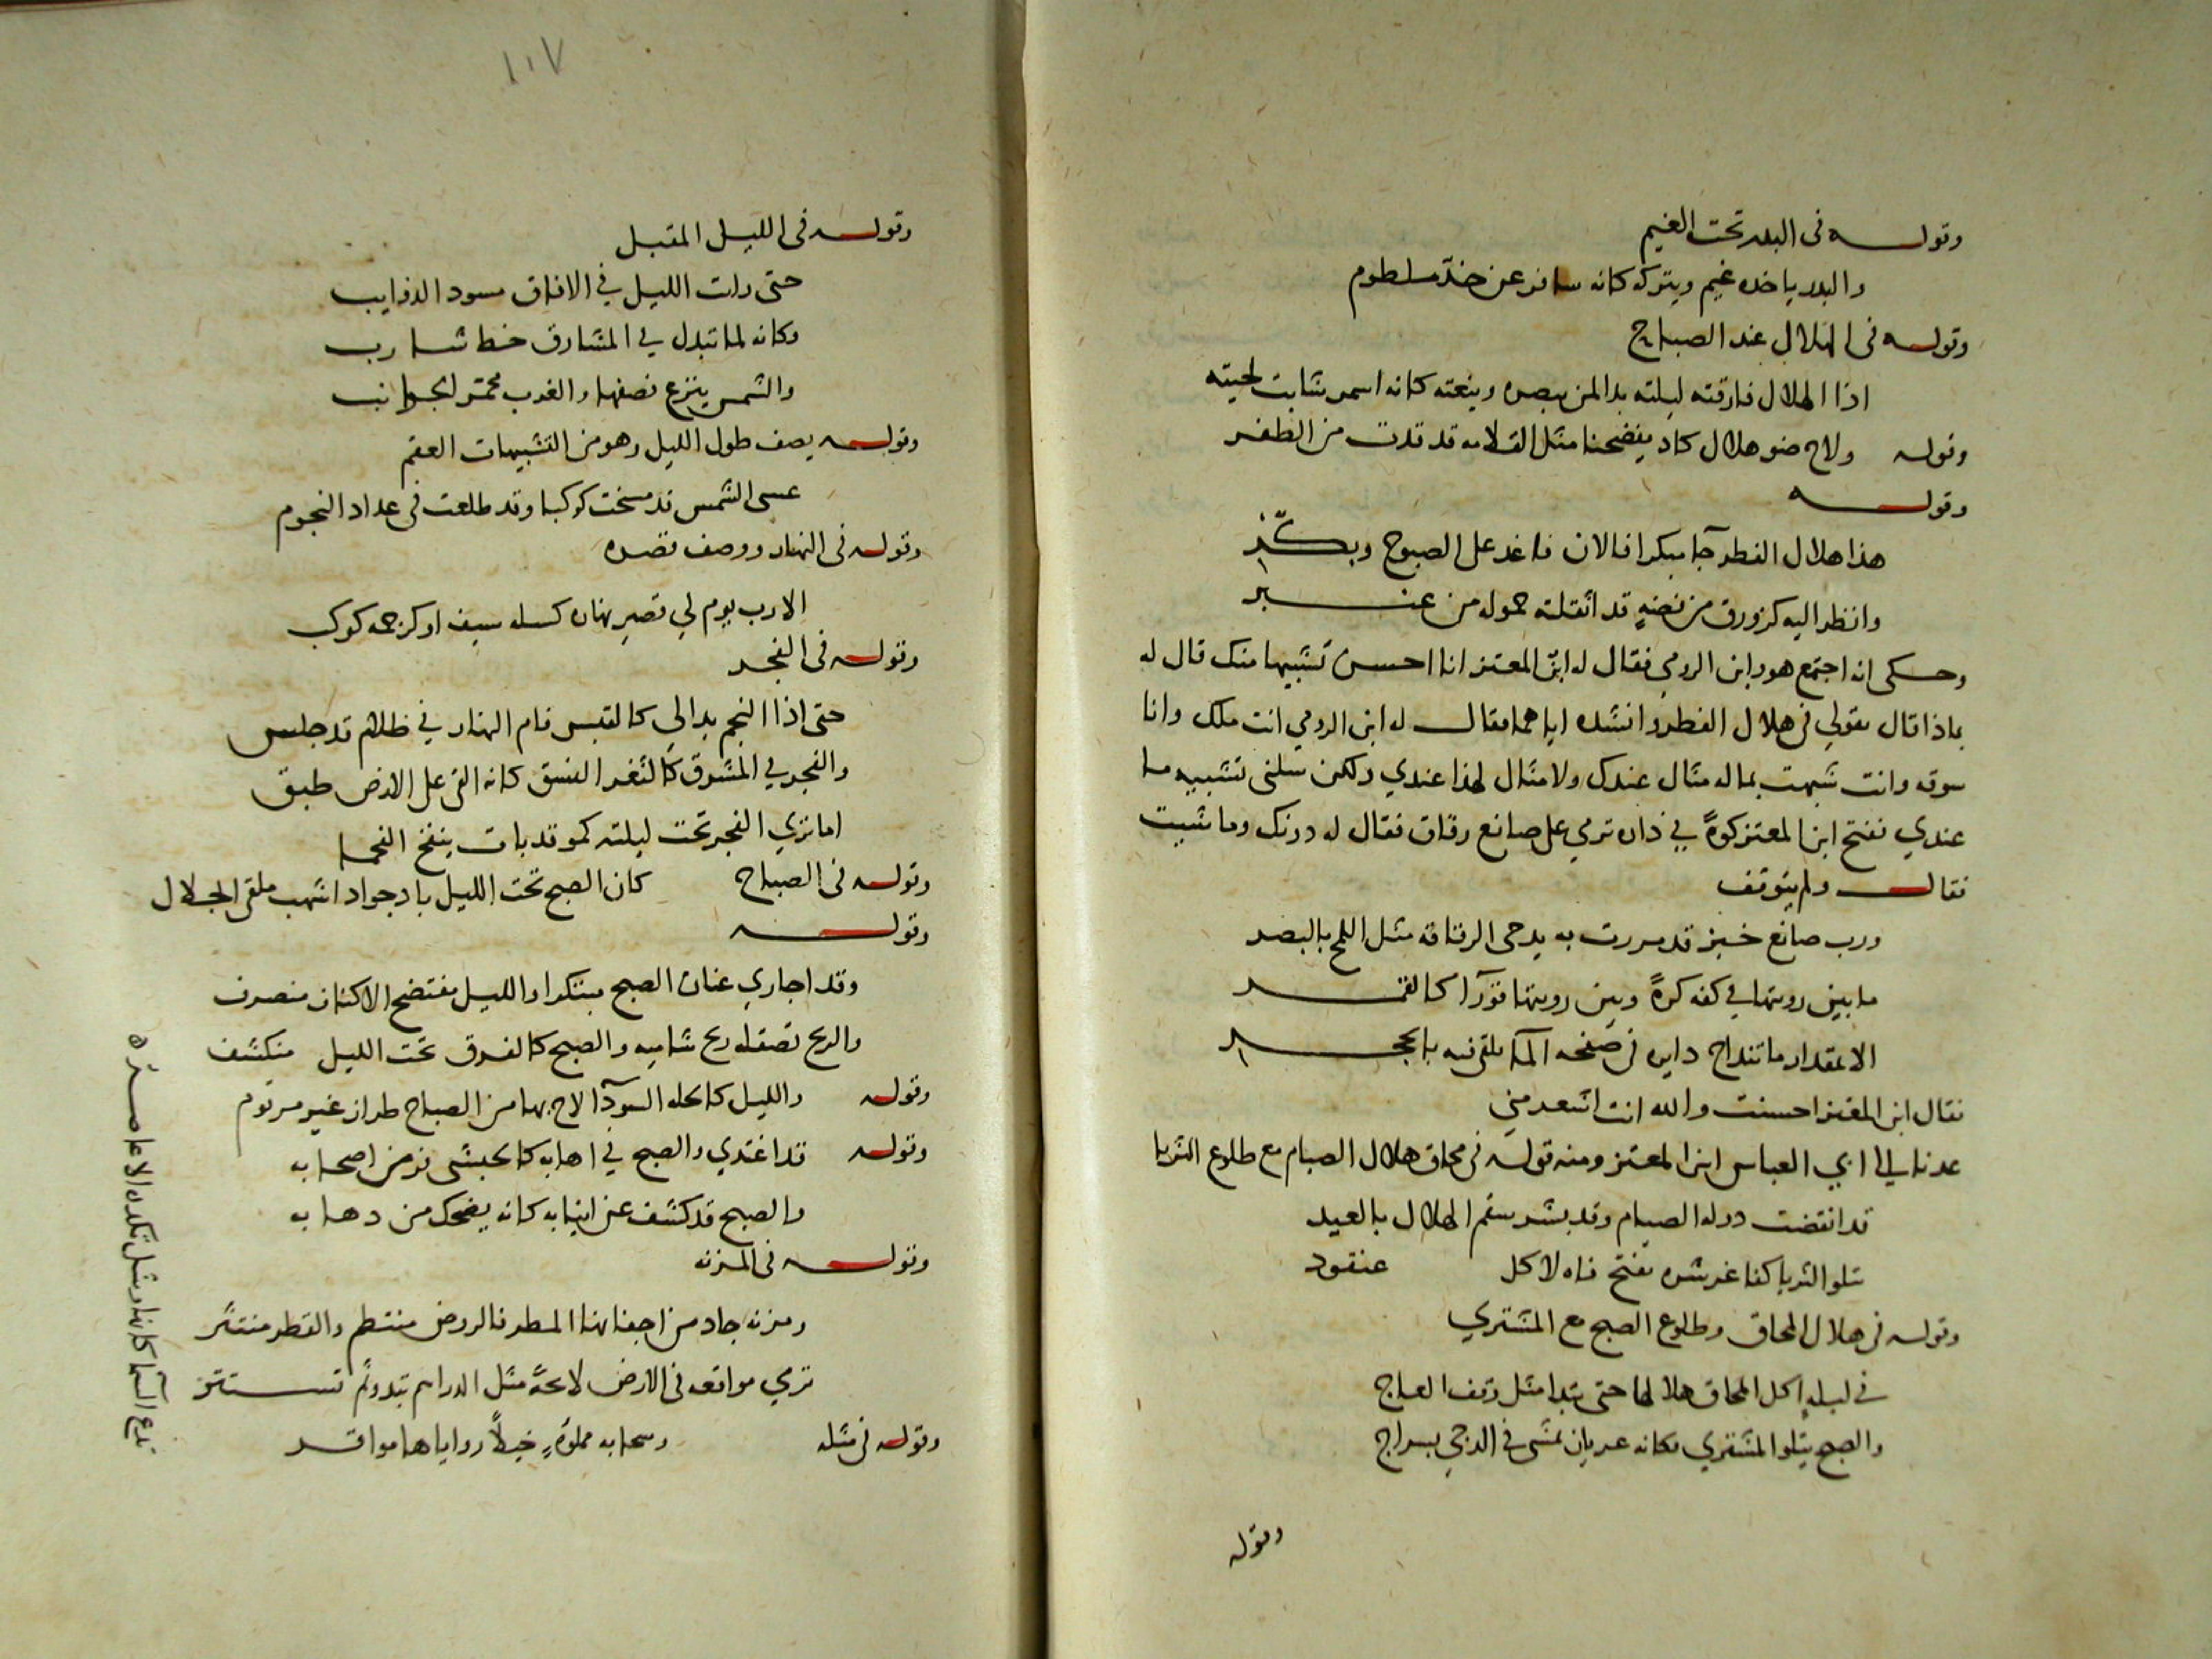 وقوله في البدر تحت الغيم
والبدر ياخذه غيم ويتركه كانه سافر عن خد ملطوم
وقوله في الهلال عند الصباح
اذا الهلال فارقته ليلته بدا لمن يبصره وينعته كانه اسمر شابت لحيته
وقوله ولاح ضو هلال كاد يفضحنا مثل القلامه قد قدت من الظفر
وقوله
هذا هلال الفطر جآ مبكرا فالان فاغد على الصبوح وبكّر
وانظر اليه كزورق من فضهٍ قد اثقلته حموله من عنبر
وحكى انه اجتمع هو وابن الرومي فقال له ابن المعتز انا احسن تشبيها منك قال له
بماذا قال بقولي في هلال الفطر وانشده اياهما فقال له ابن الرومي انت ملك وانا
سوقه وانت شبهت بماله مثال عندك ولا مثال لهذا عندي ولكن سلني تشبيه ما
عندي ففتح ابن المعتز كوةً في داره ترمي على صانع رقاق فقال له دونك وما شيت
فقال ولم يتوقف
ورب صانع خبز قد مررت به يدحى الرقاقه مثل اللمح بالبصر
ما بين رويتها في كفه كرةً وبين رويتها قورآ كالقمر
الا بمقدار ما تنداح دايره في صفحه المآ يلقى فيه بالحجر
فقال ابن المعتز احسنت والله انت اشعر مني
عدنا الى ابي العباس ابن المعتز ومنه قوله في محاق هلال الصيام مع طلوع الثريا
قد انقضت دوله الصيام وقد بشر سقم الهلال بالعيد
تتلو الثريا كفاغر شره يفتح فاه لاكل عنقود
وقوله في هلال المحاق وطلوع الصبح مع المشتري
في ليلهٍ اكل المحاق هلالها حتى تبدا مثل وقف العاج
والصبح يتلو المشتري فكانه عريان يمشى في الدجي بسراج
وقوله
١٠٧
وقوله في الليل المقبل
حتى رات الليل في الافاق مسود الذوايب
وكانه لما تبدل في المشارق خط شارب
والشمس ينزع نصفها والغرب محمر الجوانب
وقوله يصف طول الليل وهو من التشبيهات العقم
عسى الشمس قد مسخت كوكبا وقد طلعت في عداد النجوم
وقوله في النهار ووصف قصره
الا رب يوم لي قصير نهاره كسله سيف او كرجمه كوكب
وقوله في الفجر
حتى اذا النجم بدا لي كالقبس قام النهار في ظلام قد جلس
والفجر في المشرق كالثغر النسق كانه القى على الارض طبق
اما تري الفجر تحت ليلته كموقد بات ينفخ الفحما
وقوله في الصباح كان الصبح تحت الليل باد جواد اشهب ملقى الجلال
وقوله
وقد اجاري عنان الصبح مبتكرا والليل مفتضح الاكناف منصرف
والريح تصقله ريح شاميه والصبح كالفرق تحت الليل منكشف
وقوله والليل كالحله السودآ لاح بها من الصباح طراز غير مرقوم
وقوله قد اغتدي والصبح في اهابه كالحبشى فر من اصحابه
والصبح قد كشف عن انيابه كانه يضحك من دهابه
وقوله في المزنه
ومزنه جاد من اجفانها المطر فالروض منتظم والقطر منتثر
تري مواقعه في الارض لاىحةً مثل الدراهم تبدو ثم تستتر
وقوله في مثله وسحابه مملوةٍ خيلاً رواياها مواقر
تدع السما كانها